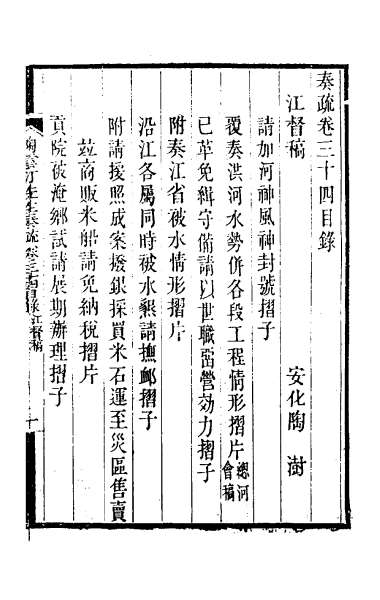 奏疏卷三十四目錄
安化陶 澍
江督稿
請加河神風神封號摺子
覆奏洪河水勢併各段工程情形摺片 總河會稿
已革免緝守備請以世職留營効力摺子
附奏江省被水情形摺片
沿江各屬同時被水懇請撫卹摺子
附請援照成案撥銀採買米石運至災區售賣
並商販米船請免納稅摺片
貢院被淹鄉試請展期辦理摺子
奏疏 卷三十四目錄 江督稿 一